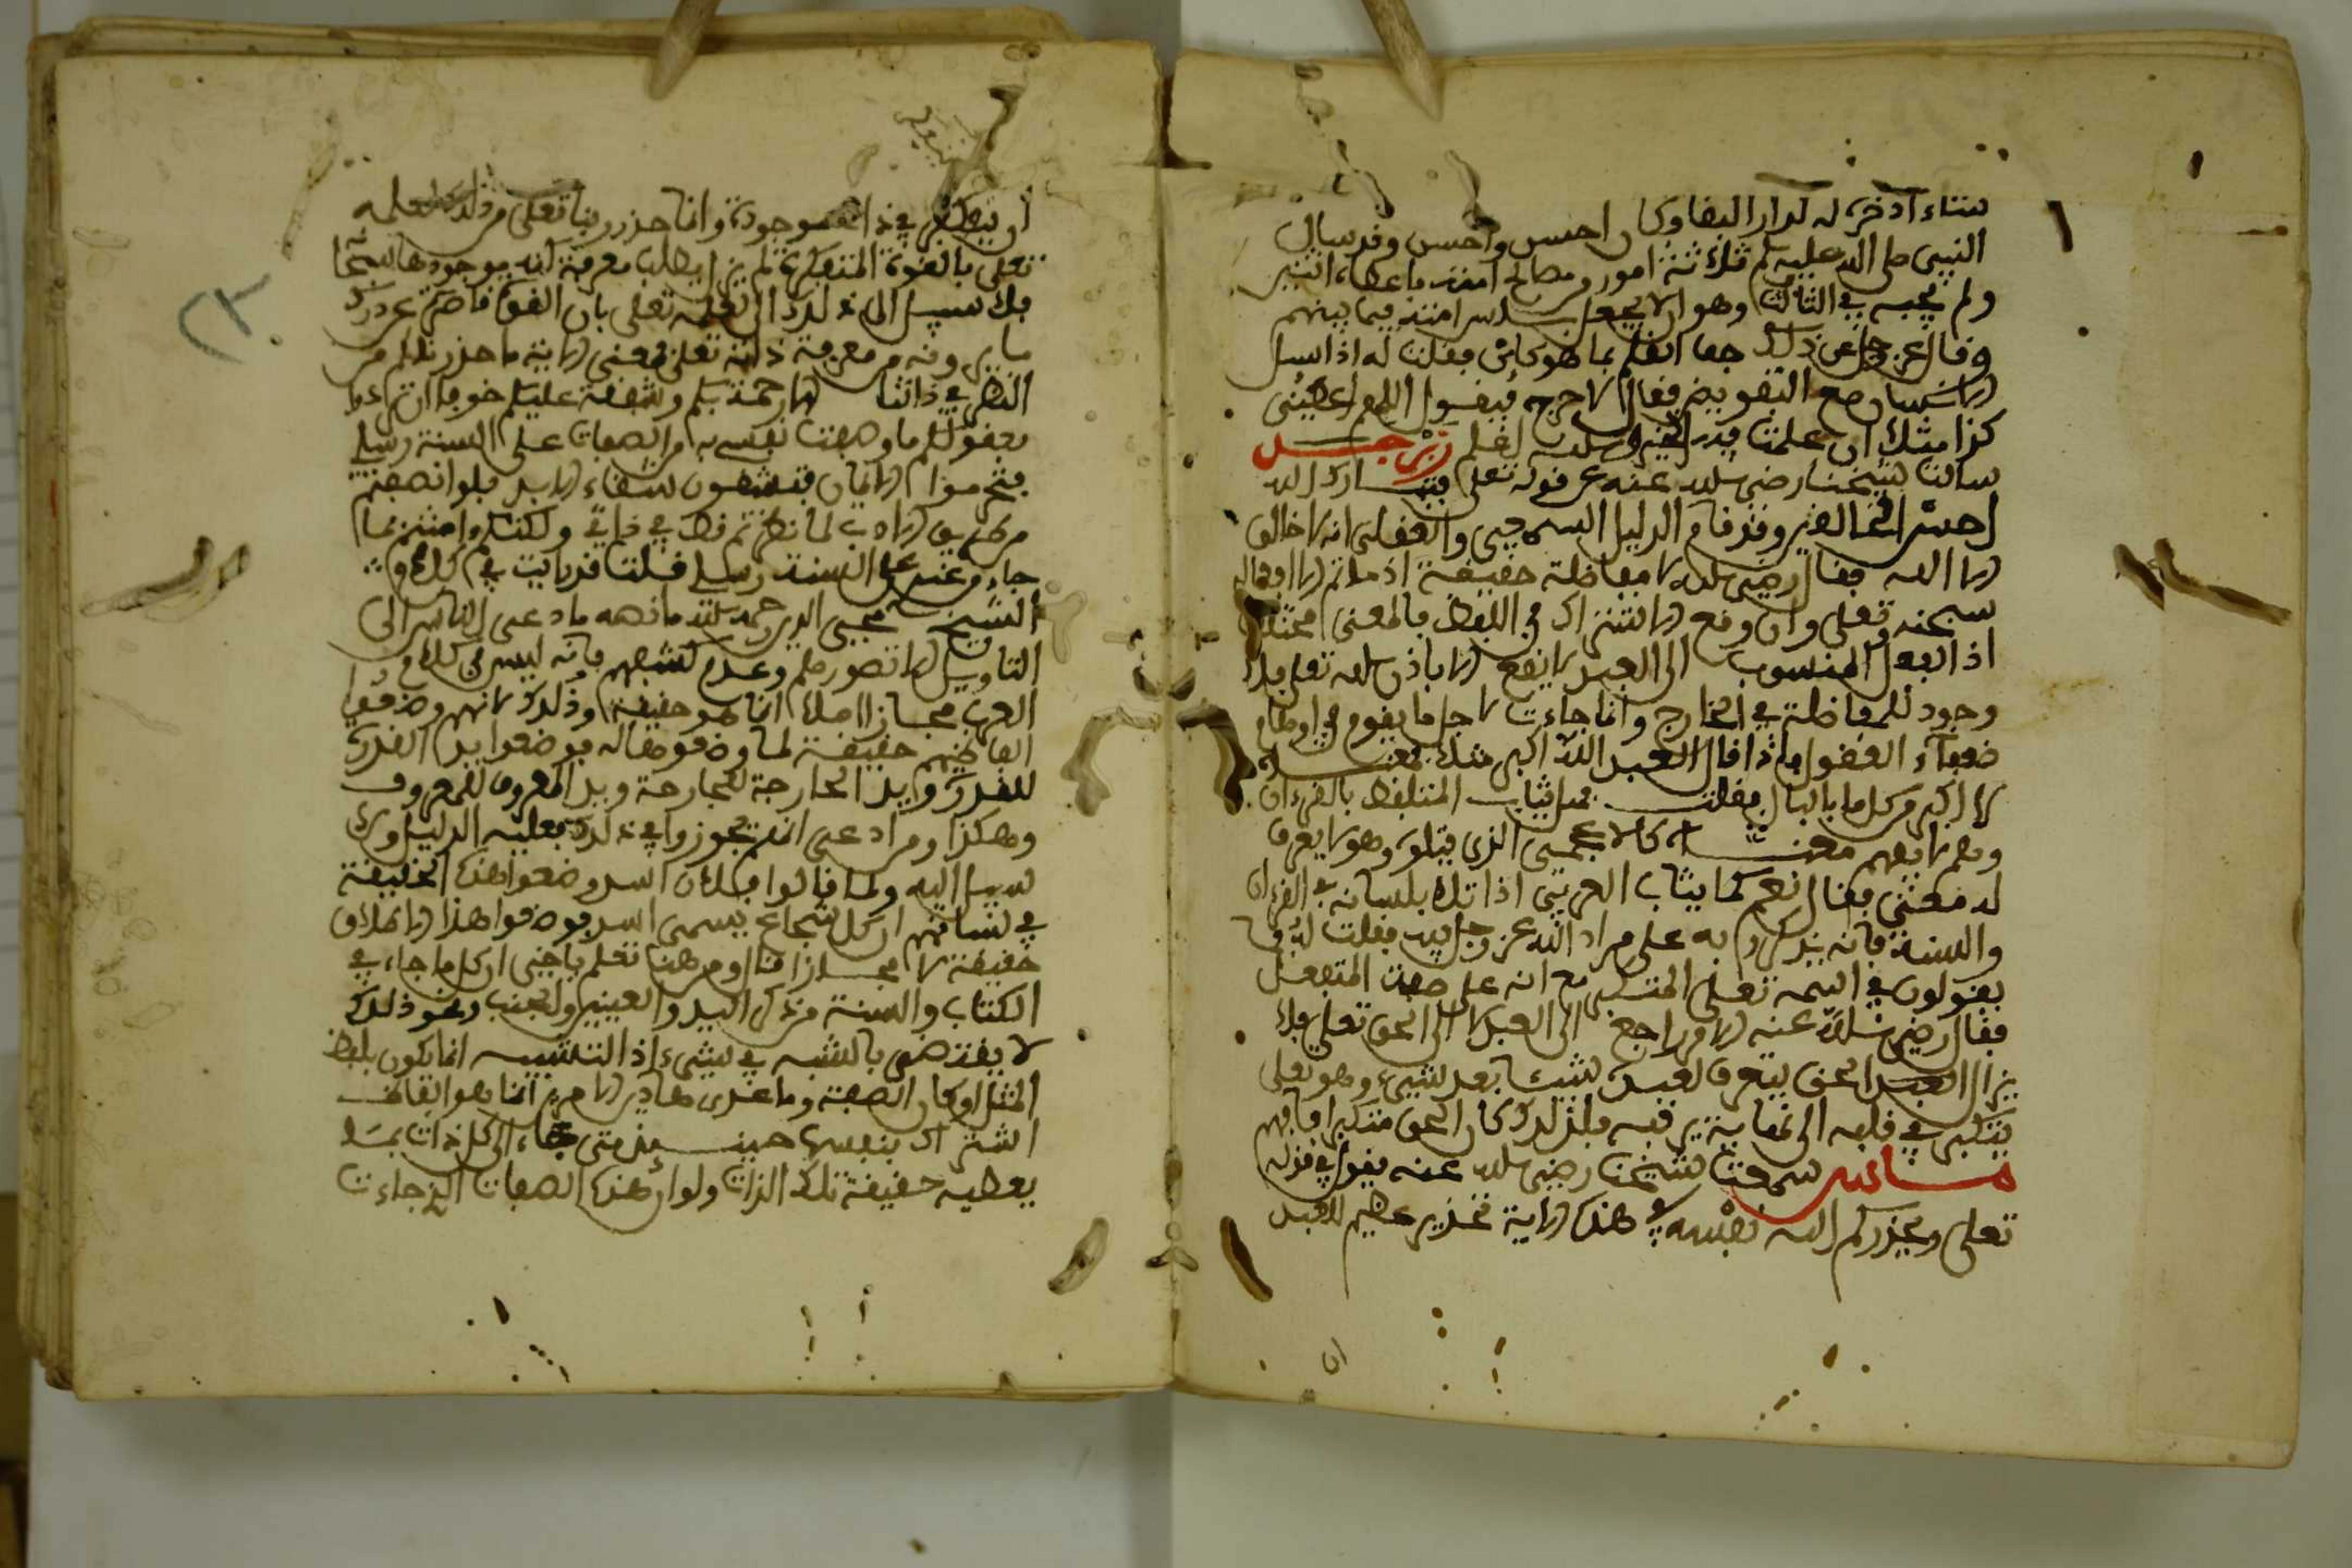 شاء ادخره له لدار البقا وكان احسن واحسن وقد سال
النبى صلى الله عليه وسلم ثلاثة امور من مصالح امته فاعطاه اثنين
ولم يجبه في الثالث وهو ان لا يجعل باس امته فيما بينهم
وقال عز وجل عن ذلك جف القلم بما هو كائن فقلت له اذا اسل
الانسان مع التفويض فقال لا حرج فيقول اللهم اعطينى
كذا مثلا ان علمت فيه الخير والله اعلم زبرجد
سالت شيخنا رضى الله عنه عن قوله تعلى فتبارك الله
احسن الخالقين وقد قام الدليل السمعي والعقلى انه لا خالق
الا الله فقال رضى الله لا مفاضلة حقيقة اذ ما ثم الا افعاله
سبحنه وتعلى وان وقع الاشتراك في اللفظ فالمعنى مختلف
اذ الفعل المنسوب الى العبد لا يقع الا باذن الله تعلى فلا
وجود للمفاضلة في الخارج وانما جاءت لاجل ما يقوم في اوهام
ضعفاء العقول فاذا قال العبد الله اكبر مثلا فمعناه
الاكبر من كل ما بالبال فقلت فهل يثاب المتلفظ بالقرءان
وهو لا يفهم معناه كالاعجمي الذى يتلوه وهو لا يعرف
له معنى فقال نعم كما يثاب العربي اذا تلاه بلسانه في القرءان
والسنة فانه يتكلم به على مراد الله عز وجل فيه فقلت له فما
يقولون في اسمه تعلى المتكبر مع انه على صفة المتفعل
فقال رضى الله عنه الامر راجع الى العبد لا الى الحق تعلى فلا
يزال العبد الحق يتعرف لعبده شيئا بعد شيء وهو تعلى
يتكبر في قلبه الى نهاية يرقبه فلذلك كان الحق متكبرا فافهم
ماس سمعت شيخنا رضى الله عنه يقول في قوله
تعلى ويحذركم الله نفسه في هذه الاية تحذير عظيم للعبد
ان
ان يتفكر في ذات موجوده وانما حذرنا ربنا تعلى من ذلك لعلمه
تعلى بالقوة المتفكرة لم يزل يطلب معرفة كنه موجودها سبحانه
فلا سبيل الى ذلك الى لعلمه تعلى بان القوا قاصرة عن درك
ما يرونه من معرفة ذاته تعلى فمعنى الاية ما حذرنكم من
النظر في ذاتنا الا رحمة بكم وشفقة عليكم خوفا ان تردوا
بعقولكم ما وصفت نفسى به من الصفات على السنة رسلي
فتحرموا الايمان فتشقون شقاء الابد فلو انصفتم
من طريق الادب لما نظرتم قط في ذاتي ولكنتم وامنتم بما
جاء من عندي على السنة رسلي قلت قد رايت في كلام
الشيخ محيي الدين رحمه الله ما نصه ما دعى الناس الى
التاويل الا تصورهم وعدم كشفهم فانه ليس في كلام
العرب مجاز اصلا انما هو حقيقة وذلك لانهم وضعوا
الفاظهم حقيقة لما وضعوها له فوضعوا يد القدرة
للقدرة ويد الجارحة للجارحة ويد المعروف للمعروف
وهكذا ومن ادعى انهم تجوزوا في ذلك فعليه الدليل ولا
سبيل اليه ولما قالوا فلان اسد وضعوا هذه الحقيقة
في لسانهم ان كل شجاع يسمى اسد فوضعوا هذا الاطلاق
حقيقة لا مجازا قال ومن هنا تعلم يا اخي ان كل ما جاء في
الكتاب والسنة من ذكر اليد والعينين والجنب ونحو ذلك
لا يقتضى بالشبه في شيء اذ التشبيه انما يكون بلفظ
المثل او كاف الصفة وما عدى هاذين الامرين انما هو الفاظ
اشتراك بنسبها حينئذ متى جاء الى كل ذات بما
يعطيه حقيقة تلك الذات ولو ان هذه الصفات التي جاءت
٢٣